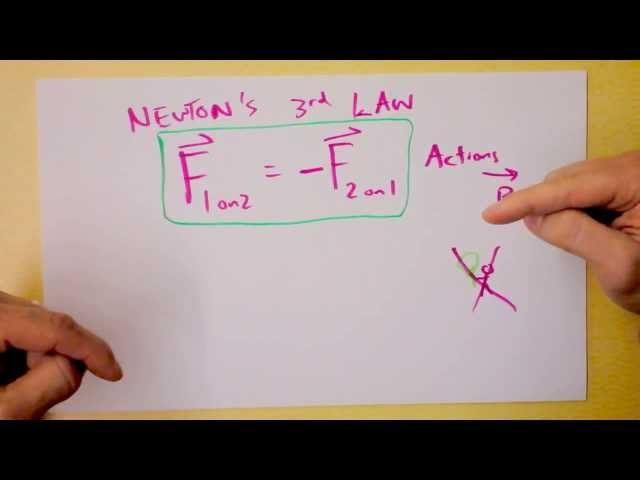 NEWTON'S 3rd LAW
F⃗ 1 on 2 = -F⃗ 2 on 1
Actions
→